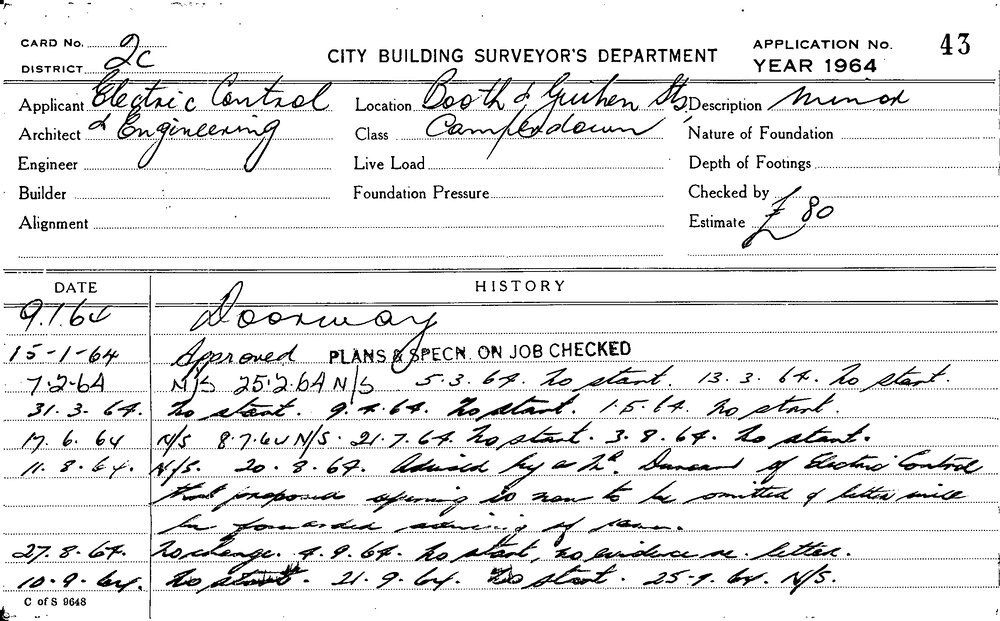 CARD No. 2c
DISTRICT
CITY BUILDING SURVEYOR'S DEPARTMENT
APPLICATION No. 43
YEAR 1964
Applicant Electric Control Location Booth & Guihen Sts, Description Minor
Architect & Engineering Class Camperdown Nature of Foundation
Engineer Live Load Depth of Footings
Builder Foundation Pressure Checked by
Alignment Estimate £80
DATE HISTORY
9.1.64 Doorway
15-1-64 Approved PLANS & SPECN. ON JOB CHECKED
7-2-64 N/S 25.2.64 N/S 5.3.64. No start. 13.3.64. No start.
31.3.64. No start. 9.4.64. No start. 1.5.64. No start.
17.6.64 N/S 8.7.64 N/S. 21.7.64. No start. 3.8.64. No start.
11.8.64. N/S. 20.8.64. Advised by a Mr. Duncan of Electric Control
that proposed opening is now to be omitted & letter will
be forwarded advising of same.
27.8.64. No change. 4.9.64. No start, no evidence re. letter.
10.9.64. No start. 21.9.64. No start. 25.9.64. N/S.
C of S 9648